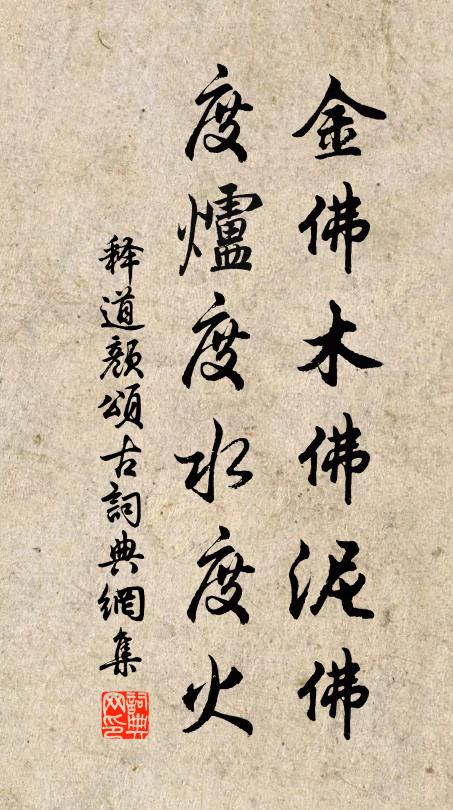 金佛木佛泥佛
度爐度水度火
释道颜頌古詞典網集
詞典网印